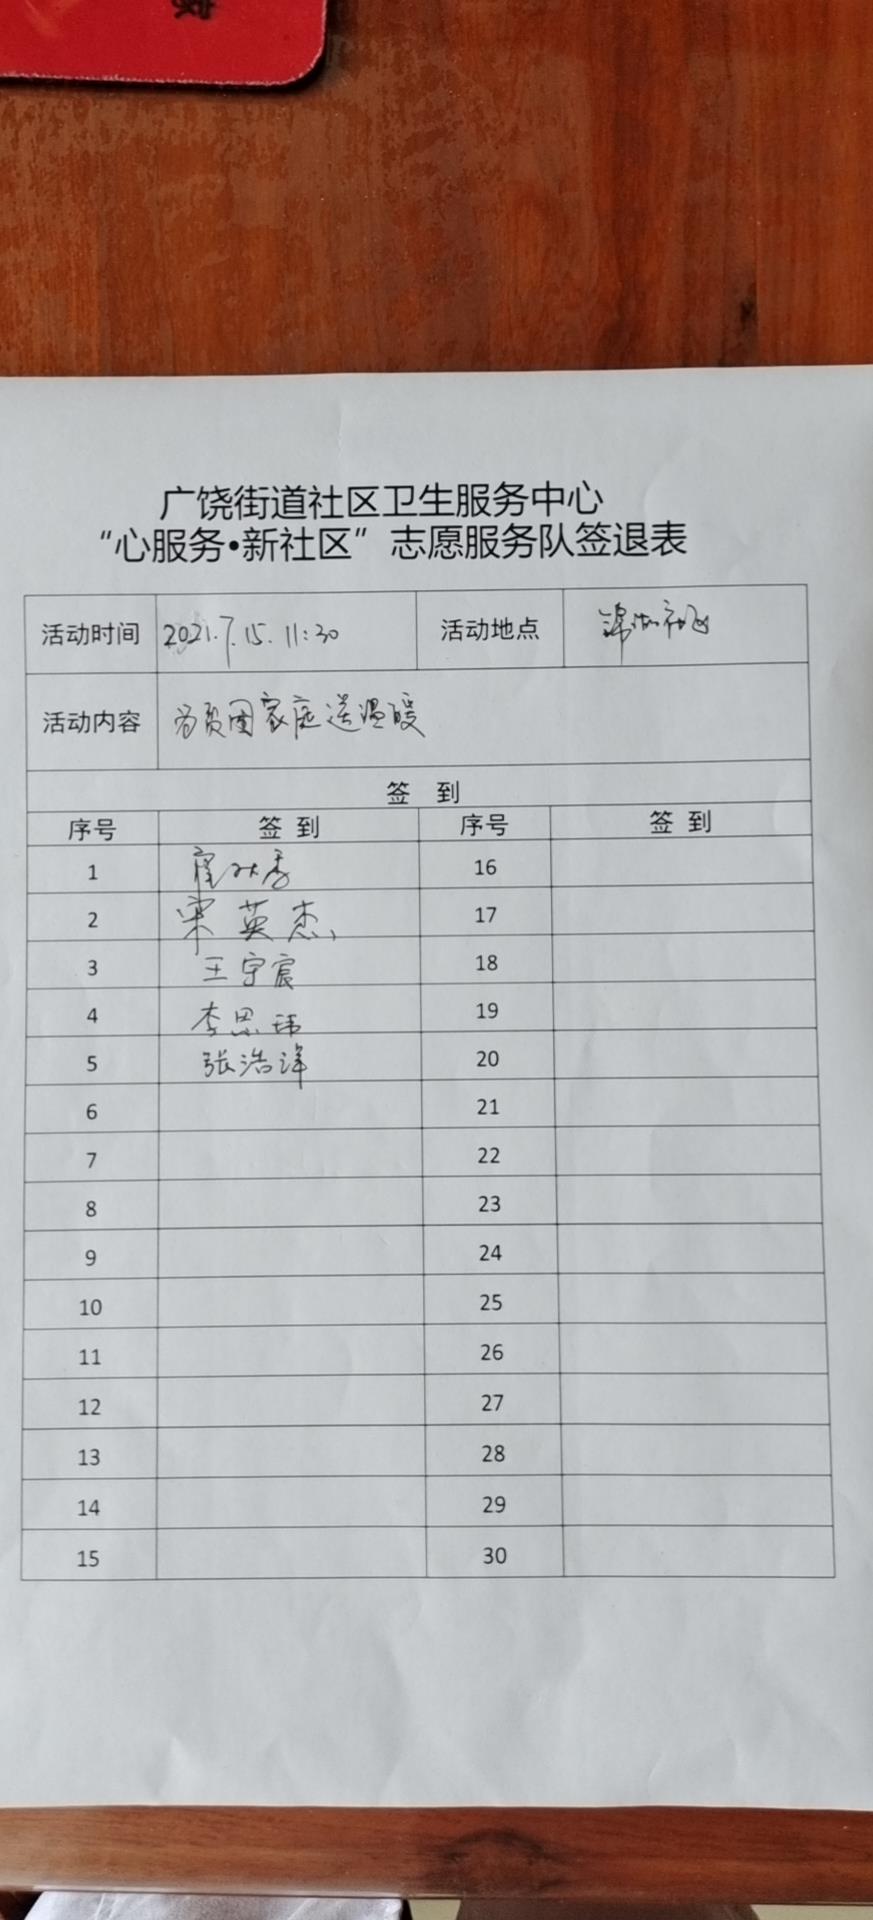 广饶街道社区卫生服务中心
“心服务•新社区”志愿服务队签退表
活动时间 2021.7.15. 11:30 活动地点 锦湖社区
活动内容 为贫困家庭送温暖
签 到
序号 签 到 序号 签 到
1 16
2 宋英杰 17
3 王宇宸 18
4 李思玮 19
5 张浩洋 20
6 21
7 22
8 23
9 24
10 25
11 26
12 27
13 28
14 29
15 30